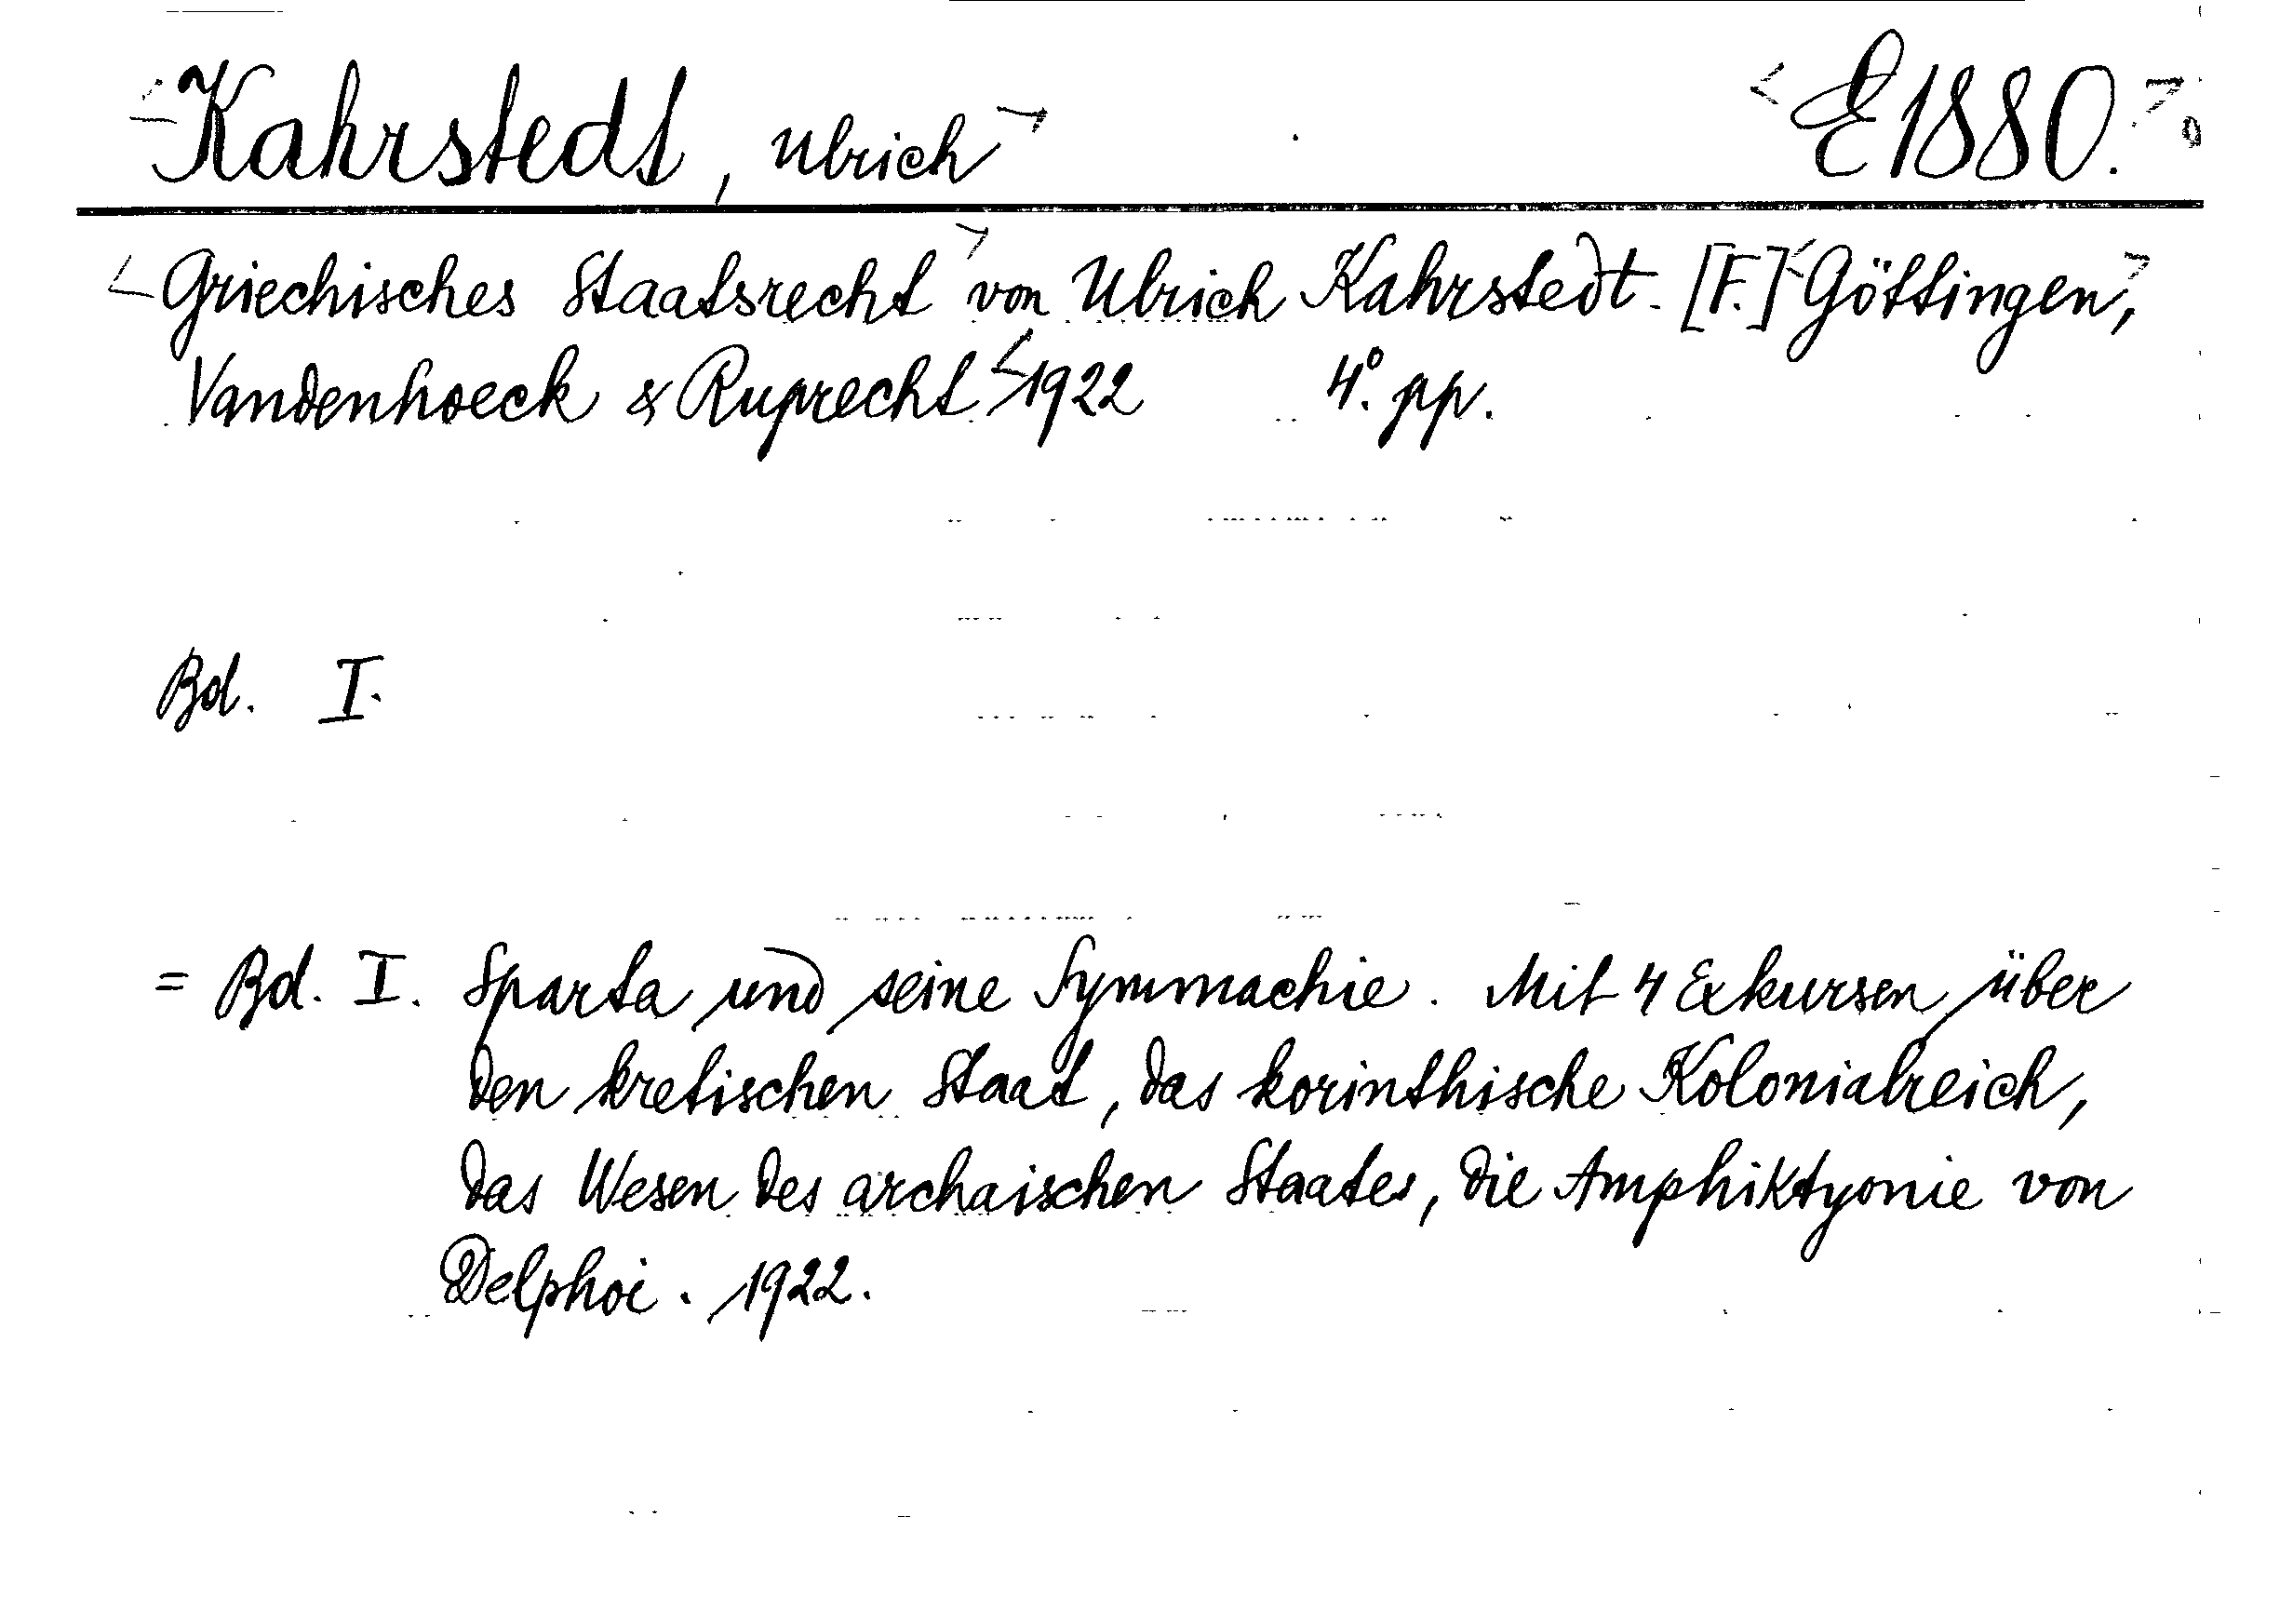 <Kahrstedt, Ulrich> <E1880.>
<Griechisches Staatsrecht> von Ulrich Kahrstedt. [F.] <Göttingen,>
Vandenhoeck & Ruprecht <1922 4° pp.
Bd. I.
= Bd. I. Sparta und seine Symmachie. Mit 4 Exkursen über
den kretischen Staat, das korinthische Kolonialreich,
das Wesen des archaischen Staates, die Amphiktyonie von
Delphoi. 1922.